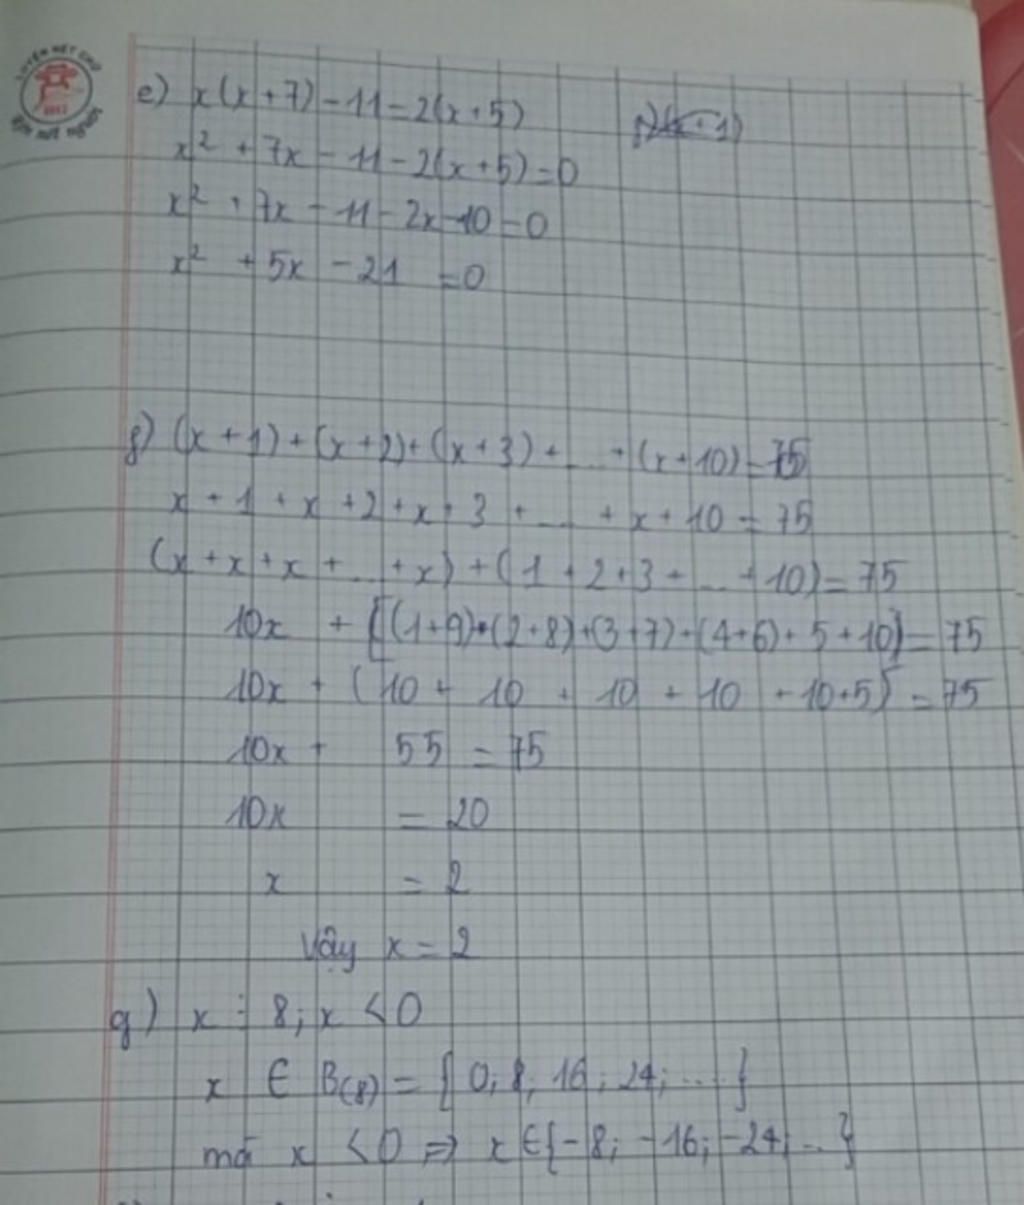 LUYỆN NÉT CHỮ
RÈN NẾT NGƯỜI
e) x(x+7) - 11 = 2(x+5)
x² + 7x - 11 - 2(x+5) = 0
x² + 7x - 11 - 2x - 10 = 0
x² + 5x - 21 = 0
f) (x+1) + (x+2) + (x+3) + ... + (x+10) = 75
x + 1 + x + 2 + x + 3 + ... + x + 10 = 75
(x + x + x + ... + x) + (1 + 2 + 3 + ... + 10) = 75
10x + [(1+9)+(2+8)+(3+7)+(4+6)+5+10] = 75
10x + (10 + 10 + 10 + 10 + 10+5) = 75
10x + 55 = 75
10x = 20
x = 2
Vậy x = 2
g) x ⋮ 8; x < 0
x ∈ B(8) = { 0; 8; 16; 24; ... }
mà x < 0 ⇒ x ∈ {-8; -16; -24; ...}